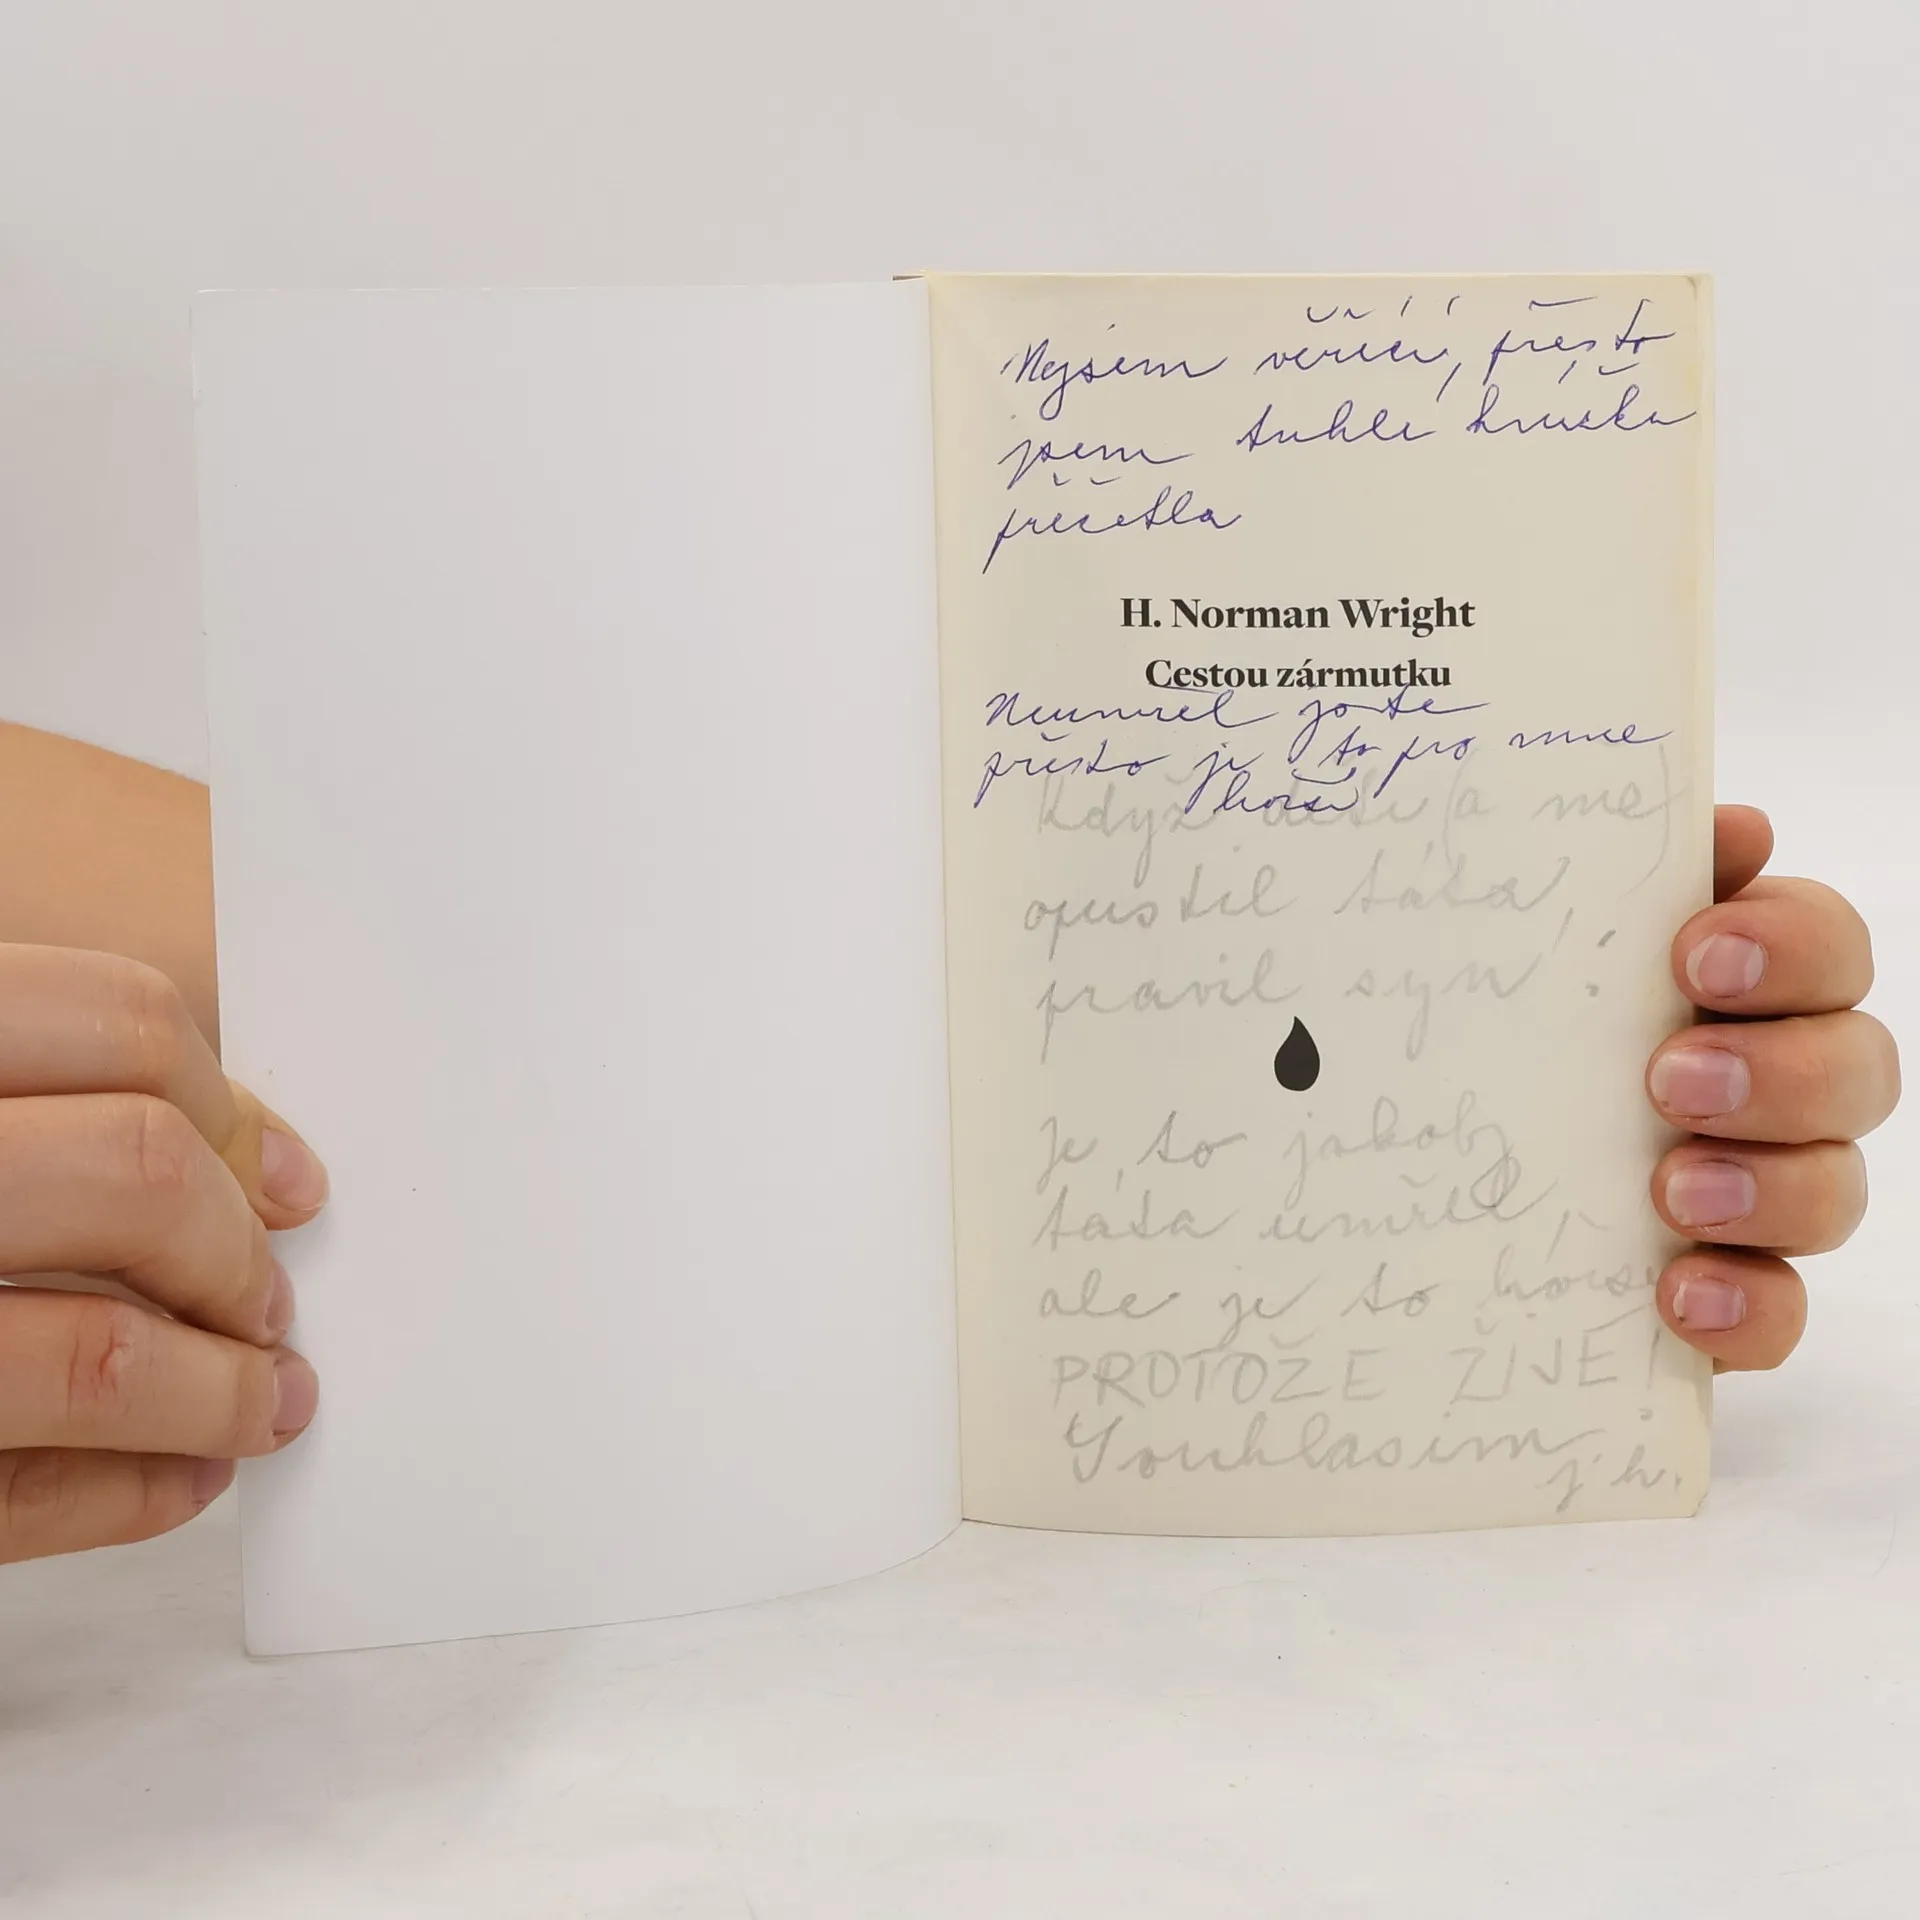 Nejsem věřící, přesto
jsem tuhle knížku
přečetla
H. Norman Wright
Cestou zármutku
Neumřel jo te
přesto je to pro mne
horší
Když děti (a mě)
opustil táta,
pravil syn:
Je to jakoby
táta umřel,
ale je to horší
PROTOŽE ŽIJE!
Souhlasím
j. h.